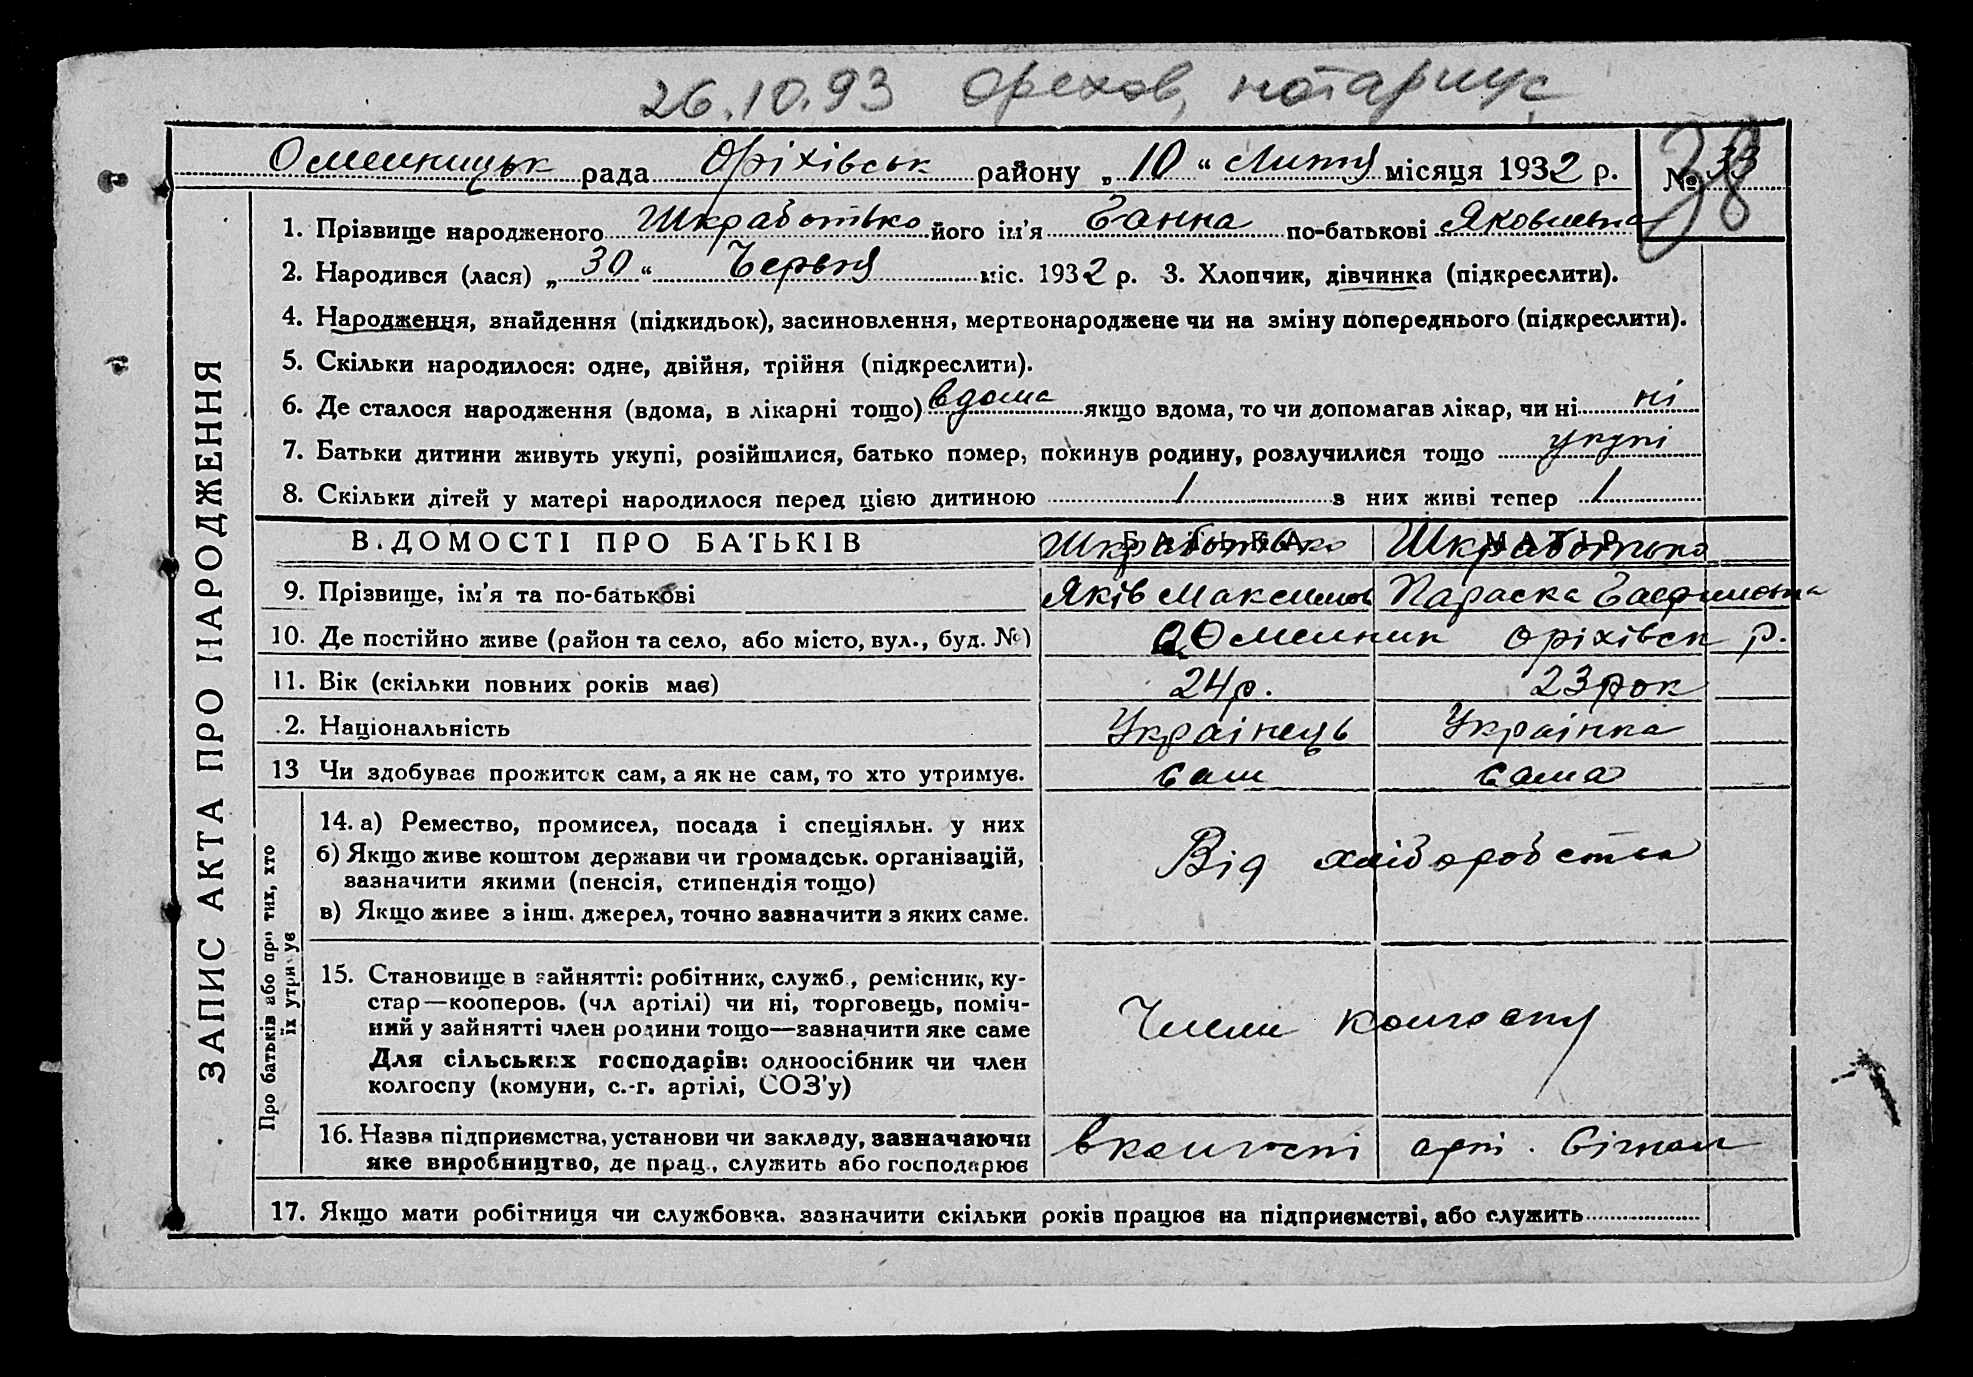 26.10.93 Орехов, нотариус
Оменницьк рада Оріхівськ району „10“ Липня місяця 1932 р. № 33
38
1. Прізвище народженого Шкработько його ім'я Ганна по-батькові Яковлевна
2. Народився (лася) „30“ Червня міс. 1932 р. 3. Хлопчик, дівчинка (підкреслити).
4. Народження, знайдення (підкидьок), засиновлення, мертвонароджене чи на зміну попереднього (підкреслити).
5. Скільки народилося: одне, двійня, трійня (підкреслити).
6. Де сталося народження (вдома, в лікарні тощо) вдома якщо вдома, то чи допомагав лікар, чи ні ні
7. Батьки дитини живуть укупі, розійшлися, батько помер, покинув родину, розлучилися тощо укупі
8. Скільки дітей у матері народилося перед цією дитиною 1 з них живі тепер 1
ЗАПИС АКТА ПРО НАРОДЖЕННЯ
В.ДОМОСТІ ПРО БАТЬКІВ БАТЬКА МАТІР
Шкработько Шкработько
9. Прізвище, ім'я та по-батькові Яків Максимов Параска Евфимовна
10. Де постійно живе (район та село, або місто, вул., буд. №) Оменник оріхівск р.
11. Вік (скільки повних років має) 24р. 23 рок
.2. Національність Украінець Украінка
13 Чи здобуває прожиток сам, а як не сам, то хто утримує. сам сама
Про батьків або про тих, хто
їх утримує
14. а) Ремество, промисел, посада і спеціяльн. у них
б) Якщо живе коштом держави чи громадськ. організацій,
зазначити якими (пенсія, стипендія тощо)
Від хліборобства
в) Якщо живе з інш. джерел, точно зазначити з яких саме.
15. Становище в зайнятті: робітник, служб., ремісник, ку-
стар—кооперов. (чл артілі) чи ні, торговець, поміч-
ний у зайнятті член родини тощо—зазначити яке саме
Члени колгоспу
Для сільських господарів: одноосібник чи член
колгоспу (комуни, с.-г. артілі, СОЗ'у)
16. Назва підприємства, установи чи закладу, зазначаючи
яке виробництво, де прац., служить або господарює
в колгоспі арт. Сігнал
17. Якщо мати робітниця чи службовка. зазначити скільки років працює на підприємстві, або служить